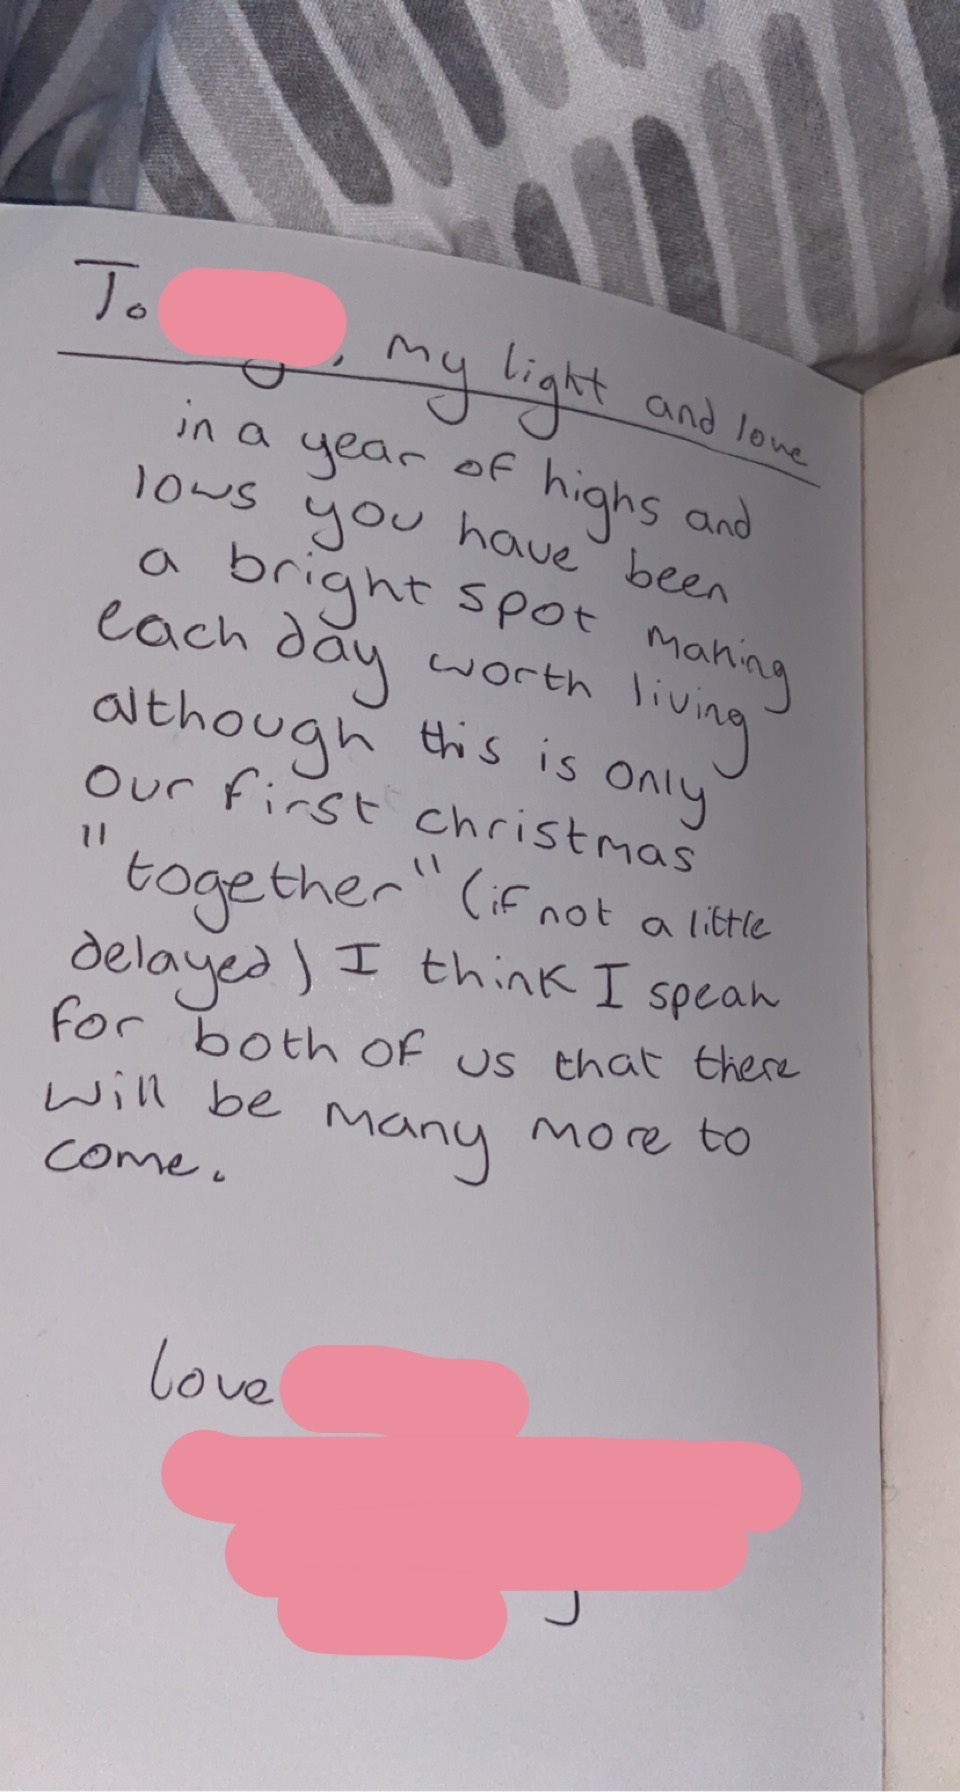 To , my light and love
in a year of highs and
lows you have been
a bright spot making
each day worth living
although this is only
our first christmas
"together" (if not a little
delayed) I think I speak
for both of us that there
will be many more to
come.
love